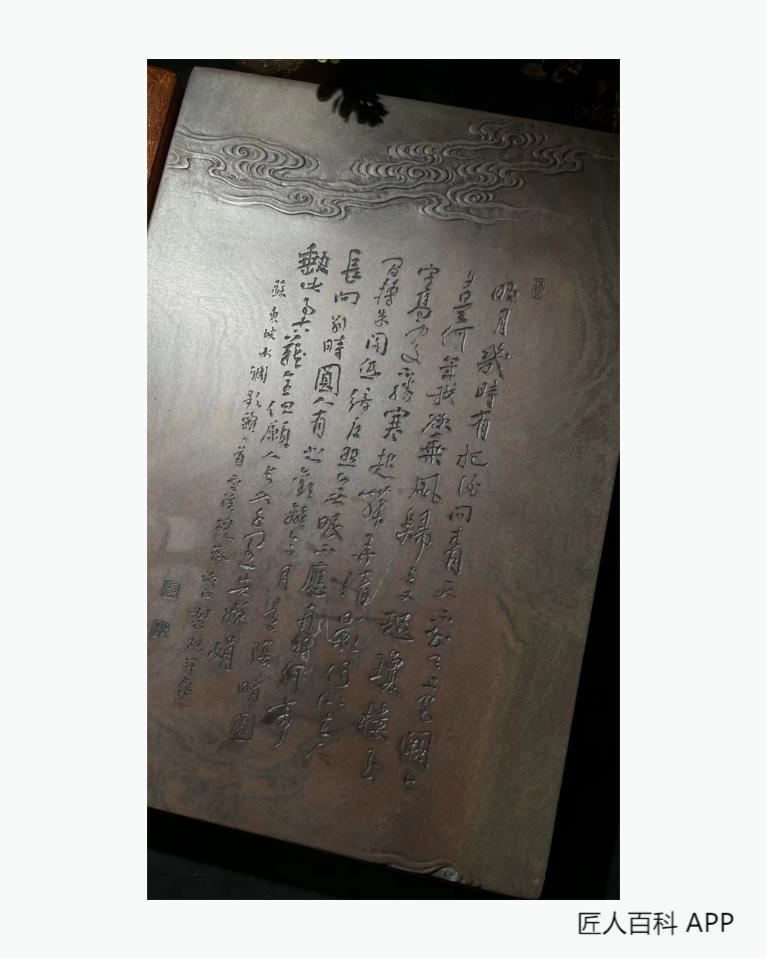 明月幾時有把酒問青天不知天上宮闕今
夕是何年我欲乘風歸去又恐瓊樓玉
宇高處不勝寒起舞弄清影何似在人
間轉朱閣低綺户照無眠不應有恨何事
長向別時圓人有悲歡離合月有陰晴圓
此事古難全但願人長久千里共嬋娟
蘇東坡水調歌頭一首
匠人百科 APP